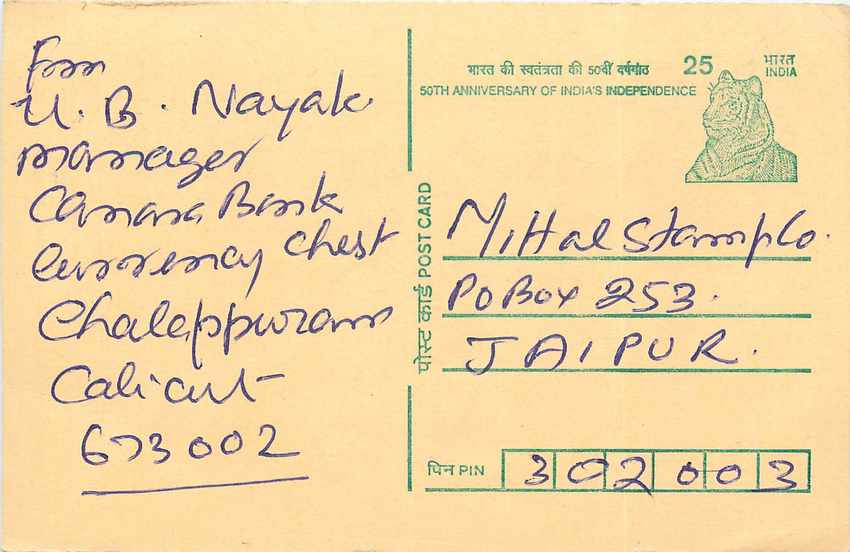 From
U. B. Nayak
manager
Canara Bank
Currency Chest
Chalappuram
Calicut
673002
भारत की स्वतंत्रता की 50वीं वर्षगांठ
50TH ANNIVERSARY OF INDIA'S INDEPENDENCE
25
भारत
INDIA
पोस्ट कार्ड POST CARD
Mittal Stamp Co.
PO Box 253.
JAIPUR.
पिन PIN 302003